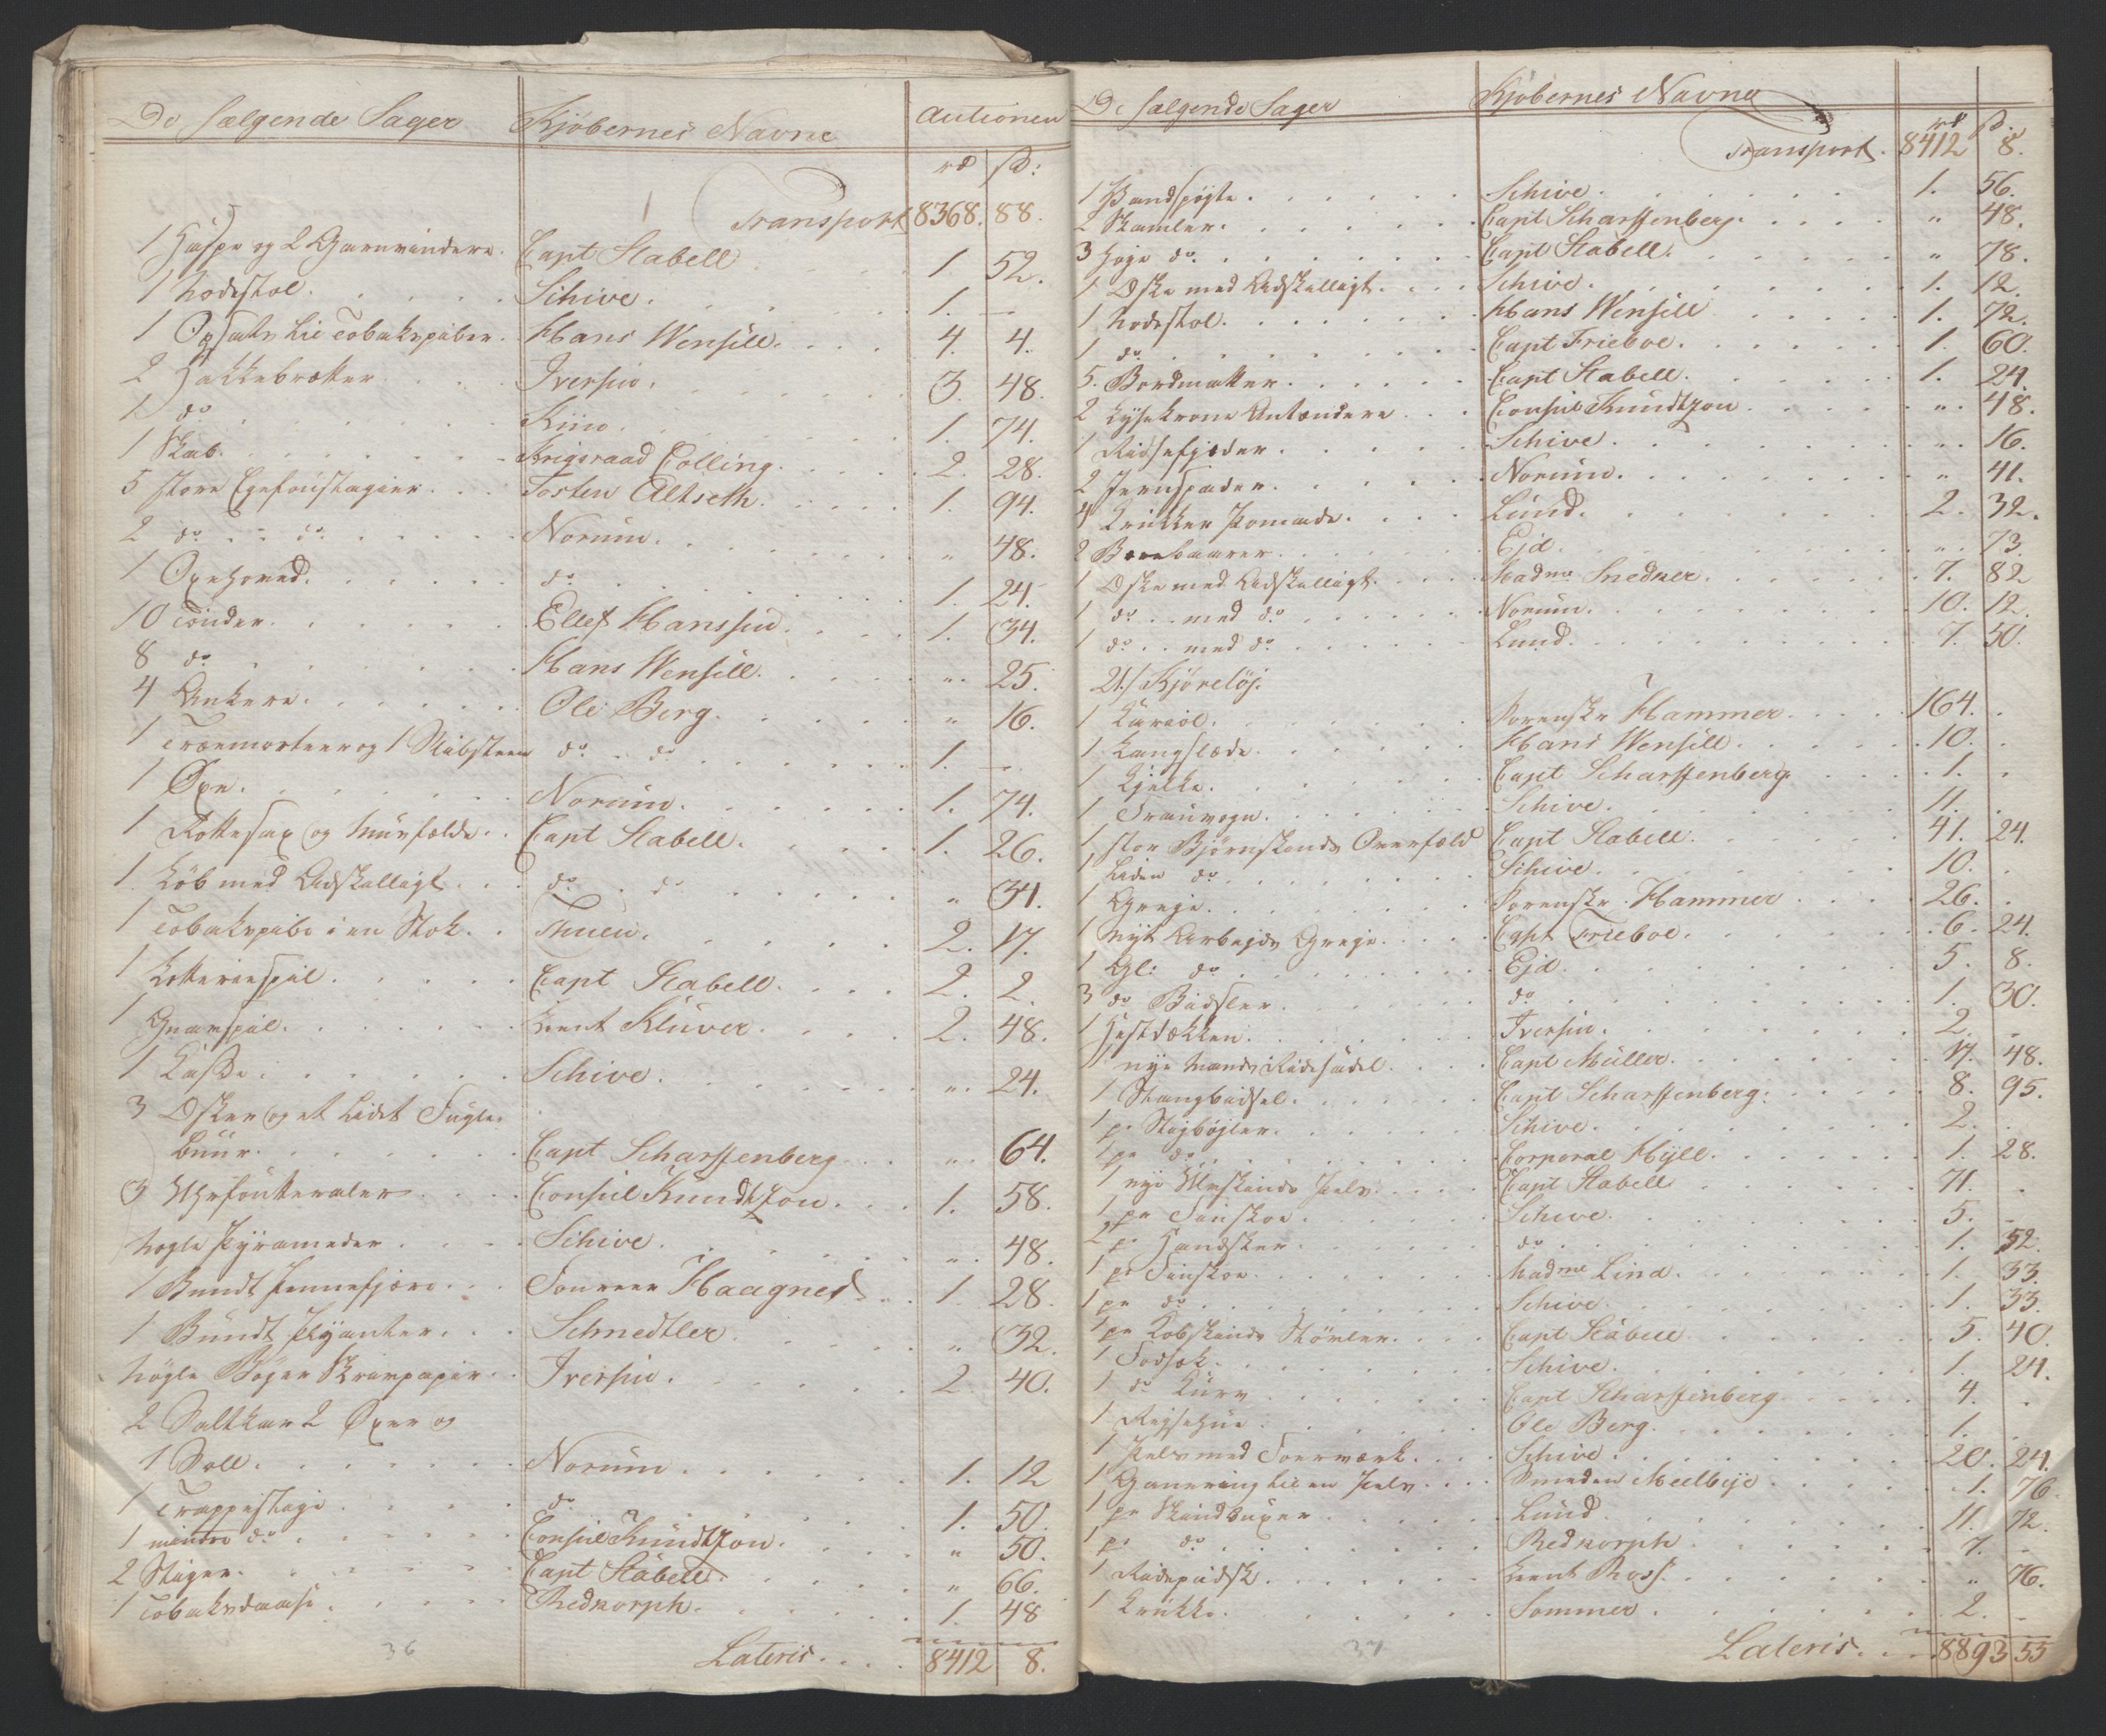 De sælgende Sager Kjøbernes Navne Auctionen
rd ß:
Transport 8368. 88.
1 Haspe og 2 Garnvindere. Capt Stabell 1. 52.
1 Nodestol. Schive. 1. —
1 Opsats til Tobakspiber. Hans Wensell. 4. 4.
2 Hakkebrætter Iversen. 3. 48.
1 do Kiin. 1. 74.
1 Skab. Krigsraad Colling. 2. 28.
5 store Egefoustagier. Tosten Altseth. 1. 94.
2 do - do Norum. " 48.
1 Oxehoved. do 1. 24.
10 Tønder. Ellef Hanssen. 1. 34.
8 do. Hans Wensell. " 25.
4 Ankere. Ole Berg. " 16.
1 Træmorteer og 1 Slibsteen do - do 1. —
1 Øxe. Norum. 1. 74.
1 Rottesax og Muusfælde. Capt Stabell. 1. 26.
1. Køb med Adskelligt. do. do " 34.
1 Tobakspibe i en Stok. Thuen. 2. 17.
1 Lotteriespil. Capt Stabell. 2. 2.
1 Gnavspil. Lieut Klüver. 2. 48.
1 Kasse. Schive. " 24.
3 Æsker og et lidet Fugle-
buur. Capt Scharffenberg " 64.
3 Uhrfoutteraler Consul Knudtzon. 1. 58.
Nogle Pyrameder Schive. " 48.
1 Bundt Pennefjære. Haagnes 1. 28.
1 Bundt Schnedtler. " 32.
Nogle Bøger Skrivpapir. Iversen. 2 40.
2 Saltkar 2 Øxer og
1 Sold. Norum. 1. 12
1 Trappestige do 1. 50.
1 mindre do. Consul Knudtzon. " 50.
2 Stiger. Capt Stabell. " 66.
1 Tobaksdaase. Rednorph. 1. 48
Lateris. 8412 8.
36
De sælgende Sager Kjøbernes Navne
rd ß.
Transport. 8412 8.
1 Schive. 1. 56.
2 Skamler. Capt Scharffenberg. " 48.
3 høge do. Capt Stabell. " 78.
1 Æske med Adskelligt. Schive. 1. 12.
1 Nodestol. Hans Wensell 1. 72.
1 do Capt Frieboe. 1. 60.
5. Bordmatter. Capt Stabell. 1. 24.
2 Lysekrone Antændere Consul Knudtzon " 48.
1 Schive. " 16.
2 Jernspader. Norum. " 41.
4 Krukker Pomade. Lund. 2. 32.
2 Bærebaarer. Ejd. " 73.
1 Æske med Adskelligt. Madme Snedker. 7. 82
1 do. . med do Norum. 10. 12.
1 do. . med do Lund. 7. 50.
21./ Kjøretøj.
1 Kariol. Sorenskr Hammer. 164. .
1 Langslæde. Hans Wensell. 10. .
1 Kjelke. Capt Scharffenberg 1. .
1 Schive. 11. .
1 stor Bjørneskinds Overfæld Capt Stabell. 41. 24.
1 liden do Schive. 10. .
1 Greje. Sorenskr. Hammer 26. .
1 Nyt Arbejds Greje. Capt Frieboe. 6. 24.
1 Gl: do Ejd. 5. 8.
3 do Bidsler. do 1. 30.
1 Hestdækken. Iversen. 2. .
1 nye Mands Ridesadel. Capt Müller. 17. 48.
1 Stangbidsel. Capt Scharffenberg. 8. 95.
1 pr Stigbøjler. Schive. 2. .
1 pr do. Corporal Hyll. 1. 28.
1 nye Ulveskinds Pels. Capt Stabell 71. .
1 pr Finskoe. Schive. 5. .
2 pr Handsker. do 1. 52.
1 pr Finskoe. Madme Lind. 1. 33.
1 pr do. Schive. 1. 33.
1 pr Kobskinds Støvler. Capt Stabell 5. 40.
1 Fodsæk. Schive. 1. 24.
1 do Kurv Capt Scharffenberg. 4. .
1 Rejsehue. Ole Berg. 1. .
1 Pels med Foerværk. Schive. 20. 24.
1 Garnering til en Pels. Smeden Meelbye. 1. 76.
1 pr Skindbuxer. Lund. 11. 72.
1 pr do. Rednorph 7. -
1 Ridepidsk. Lieut Ross. " 76.
1 Krukke. Sommer. 2. -
Lateris. 8893 55
37